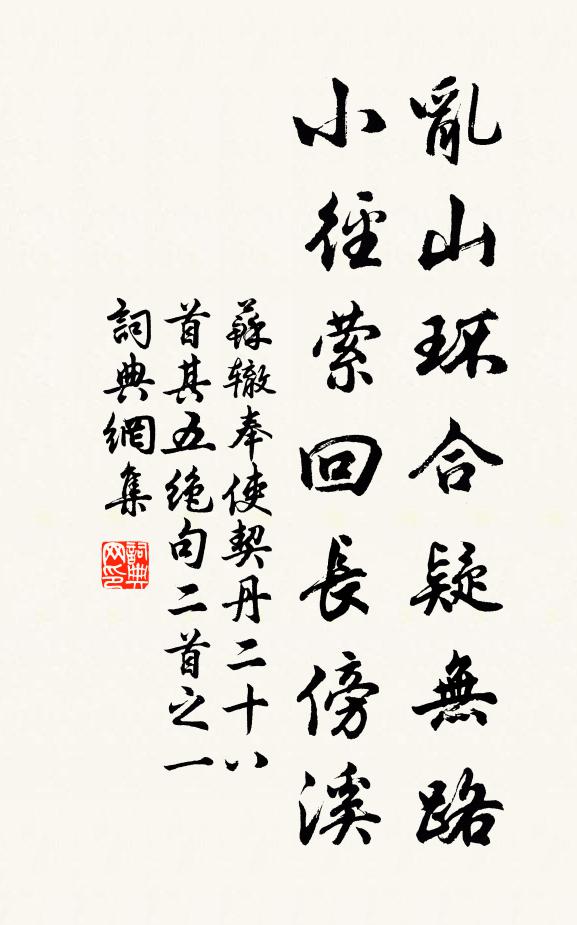 亂山環合疑無路
小徑縈回長傍溪
蘇轍奉使契丹二十八
首其五绝句二首之一
詞典網集
詞典
网印